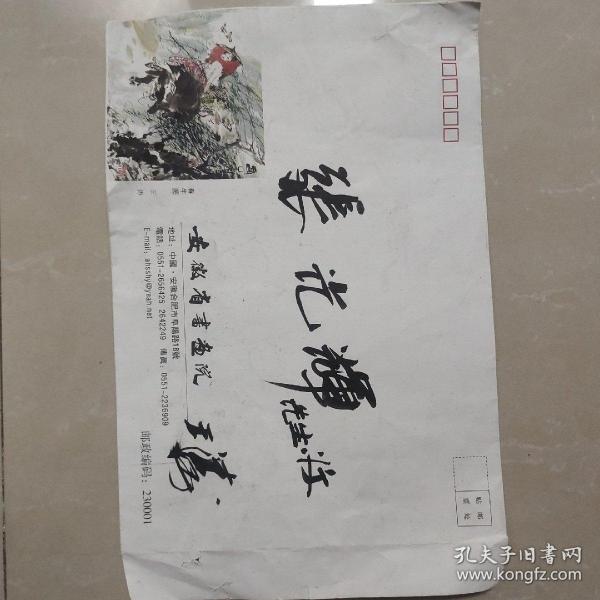 張光輝
先生收
安徽省書畫院 王涛
地址：中國·安徽合肥市阜陽路18號
電話：0551-2656425 2642249 傳真：0551-2236909
E-mail：ahsshy@yeah.net
邮政编码：230001
孔夫子旧书网
www.kongfz.com